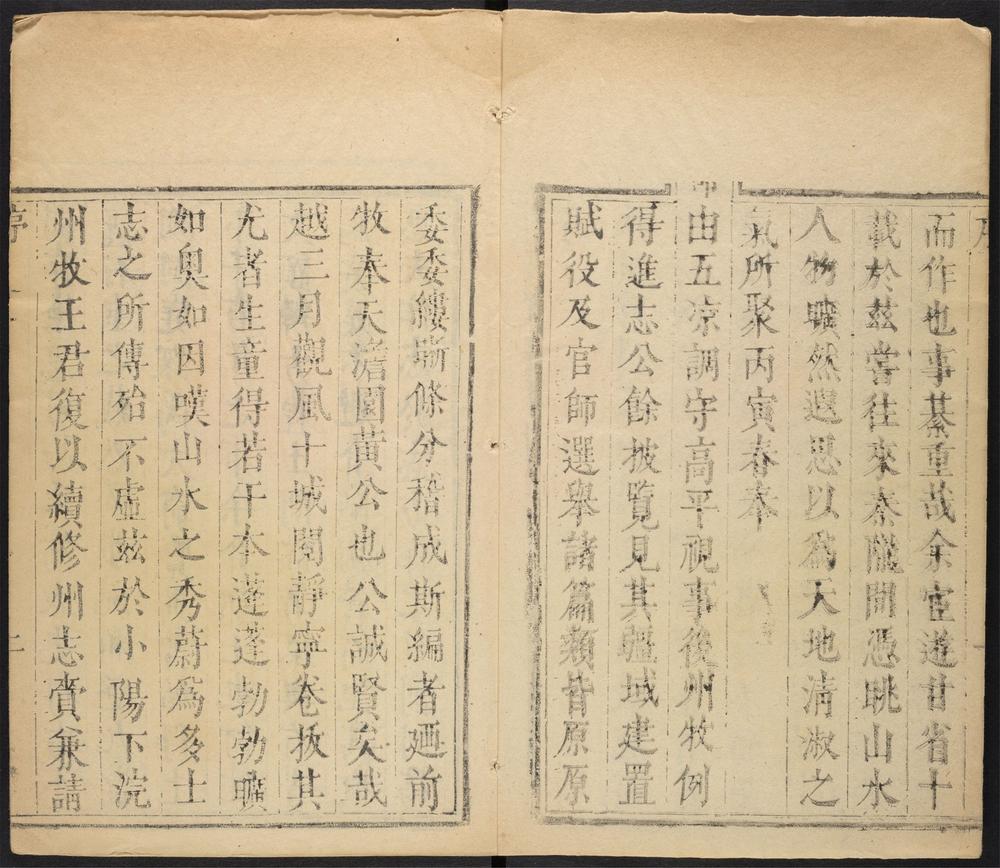 而作也事綦重哉余宦遊甘省十
載於茲嘗往來秦隴間憑眺山水
人物曠然遐思以爲天地清淑之
氣所聚丙寅春奉
命由五凉調守高平視事後州牧例
得進志公餘披覽見其疆域建置
賦役及官師選舉諸篇類皆原原
委委縷晰條分稽成斯編者廼前
牧奉天澹園黃公也公誠賢矣哉
越三月觀風十城閱靜寧卷拔其
尤者生童得若干本蓬蓬勃勃曠
如奧如因嘆山水之秀蔚爲多士
志之所傳殆不虛茲於小陽下浣
州牧王君復以續修州志賫兼請
序